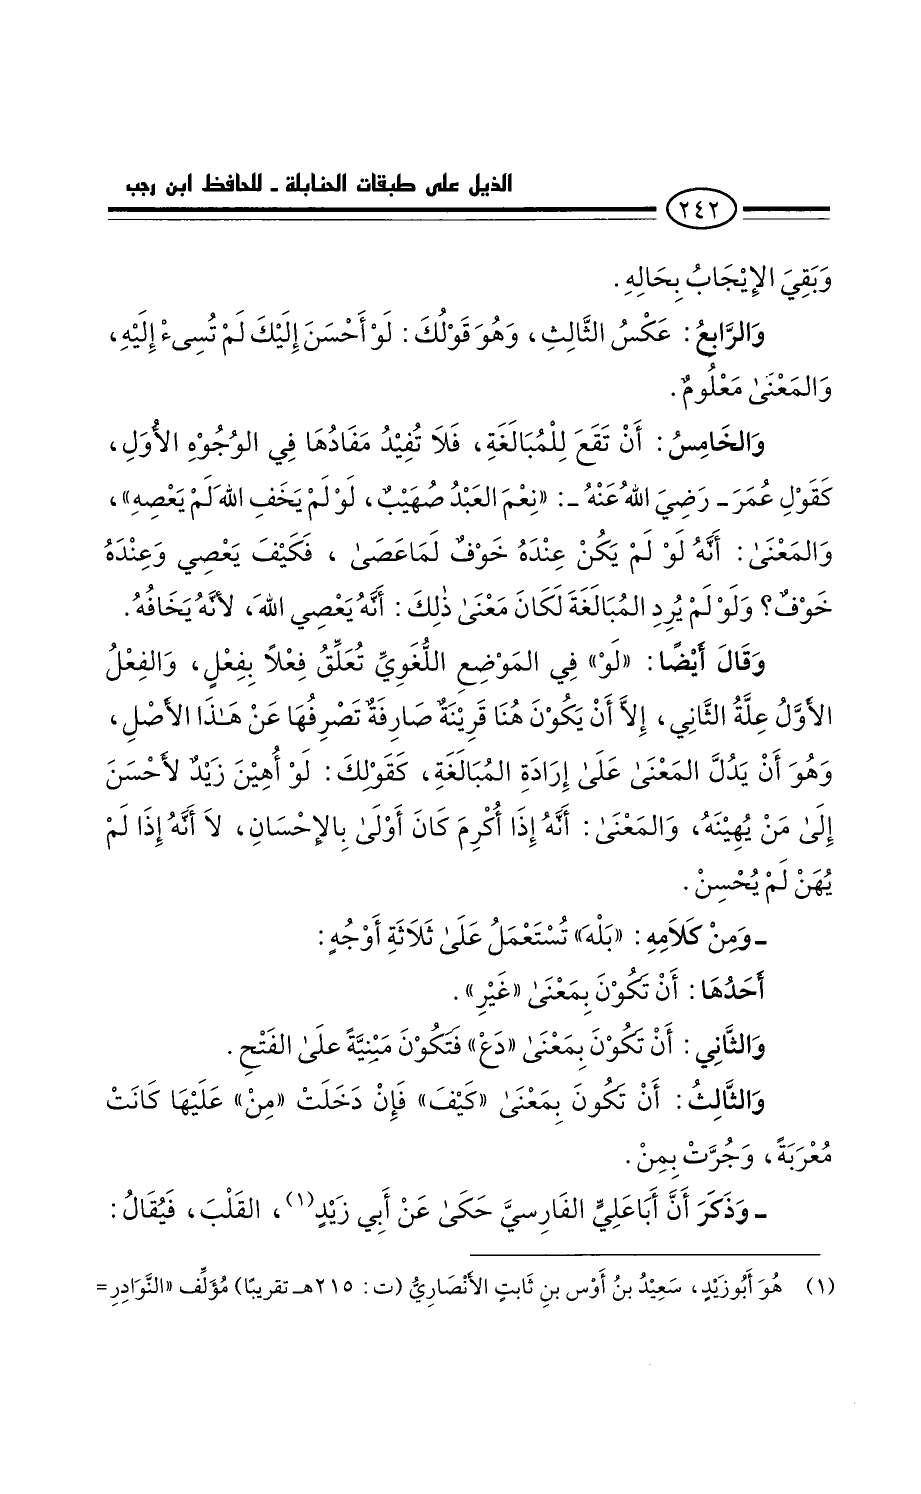 الذيل على طبقات الحنابلة - للحافظ ابن رجب
٢٤٢
وَبَقِيَ الإِيْجَابُ بِحَالِهِ .
وَالرَّابِعُ : عَكْسُ الثَّالِثِ ، وَهُوَ قَوْلُكَ : لَوْ أَحْسَنَ إِلَيْكَ لَمْ تُسِىءْ إِلَيْهِ ،
وَالمَعْنَىٰ مَعْلُومٌ .
وَالخَامِسُ : أَنْ تَقَعَ لِلْمُبَالَغَةِ ، فَلَا تُفِيْدُ مَفَادُهَا فِي الوُجُوْهِ الأُوَلِ ،
كَقَوْلِ عُمَرَ - رَضِيَ اللهُ عَنْهُ - : «نِعْمَ العَبْدُ صُهَيْبٌ ، لَوْ لَمْ يَخَفِ اللهَ لَمْ يَعْصِهِ» ،
وَالمَعْنَىٰ : أَنَّهُ لَوْ لَمْ يَكُنْ عِنْدَهُ خَوْفٌ لَمَا عَصَىٰ ، فَكَيْفَ يَعْصِي وَعِنْدَهُ
خَوْفٌ؟ وَلَوْ لَمْ يُرِدِ المُبَالَغَةَ لَكَانَ مَعْنَىٰ ذٰلِكَ : أَنَّهُ يَعْصِي اللهَ ، لأَنَّهُ يَخَافُهُ .
وَقَالَ أَيْضًا : «لَوْ» فِي المَوْضِعِ اللُّغَوِيِّ تُعَلِّقُ فِعْلاً بِفِعْلٍ ، وَالفِعْلُ
الأَوَّلُ عِلَّةُ الثَّانِي ، إِلاَّ أَنْ يَكُوْنَ هُنَا قَرِيْنَةٌ صَارِفَةٌ تَصْرِفُهَا عَنْ هَـٰذَا الأَصْلِ ،
وَهُوَ أَنْ يَدُلَّ المَعْنَىٰ عَلَىٰ إِرَادَةِ المُبَالَغَةِ ، كَقَوْلِكَ : لَوْ أُهِيْنَ زَيْدٌ لأَحْسَنَ
إِلَىٰ مَنْ يُهِيْنَهُ ، وَالمَعْنَىٰ : أَنَّهُ إِذَا أُكْرِمَ كَانَ أَوْلَىٰ بِالإِحْسَانِ ، لاَ أَنَّهُ إِذَا لَمْ
يُهَنْ لَمْ يُحْسِنْ .
- وَمِنْ كَلَامِهِ : «بَلْهَ» تُسْتَعْمَلُ عَلَىٰ ثَلَاثَةِ أَوْجُهٍ :
أَحَدُهَا : أَنْ تَكُوْنَ بِمَعْنَىٰ «غَيْرِ» .
وَالثَّانِي : أَنْ تَكُوْنَ بِمَعْنَىٰ «دَعْ» فَتَكُوْنَ مَبْنِيَّةً علَىٰ الفَتْحِ .
وَالثَّالِثُ : أَنْ تَكُونَ بِمَعْنَىٰ «كَيْفَ» فَإِنْ دَخَلَتْ «مِنْ» عَلَيْهَا كَانَتْ
مُعْرَبَةً ، وَجُرَّتْ بِمِنْ .
- وَذَكَرَ أَنَّ أَبَا عَلِيٍّ الفَارِسيَّ حَكَىٰ عَنْ أَبِي زَيْدٍ(١) ، القَلْبَ ، فَيُقَالُ :
(١) هُوَ أَبُو زَيْدٍ ، سَعِيْدُ بنُ أَوْسِ بنِ ثَابتٍ الأَنْصَارِيُّ (ت : ٢١٥هـ تقريبًا) مُؤَلِّف «النَّوَادِرِ =